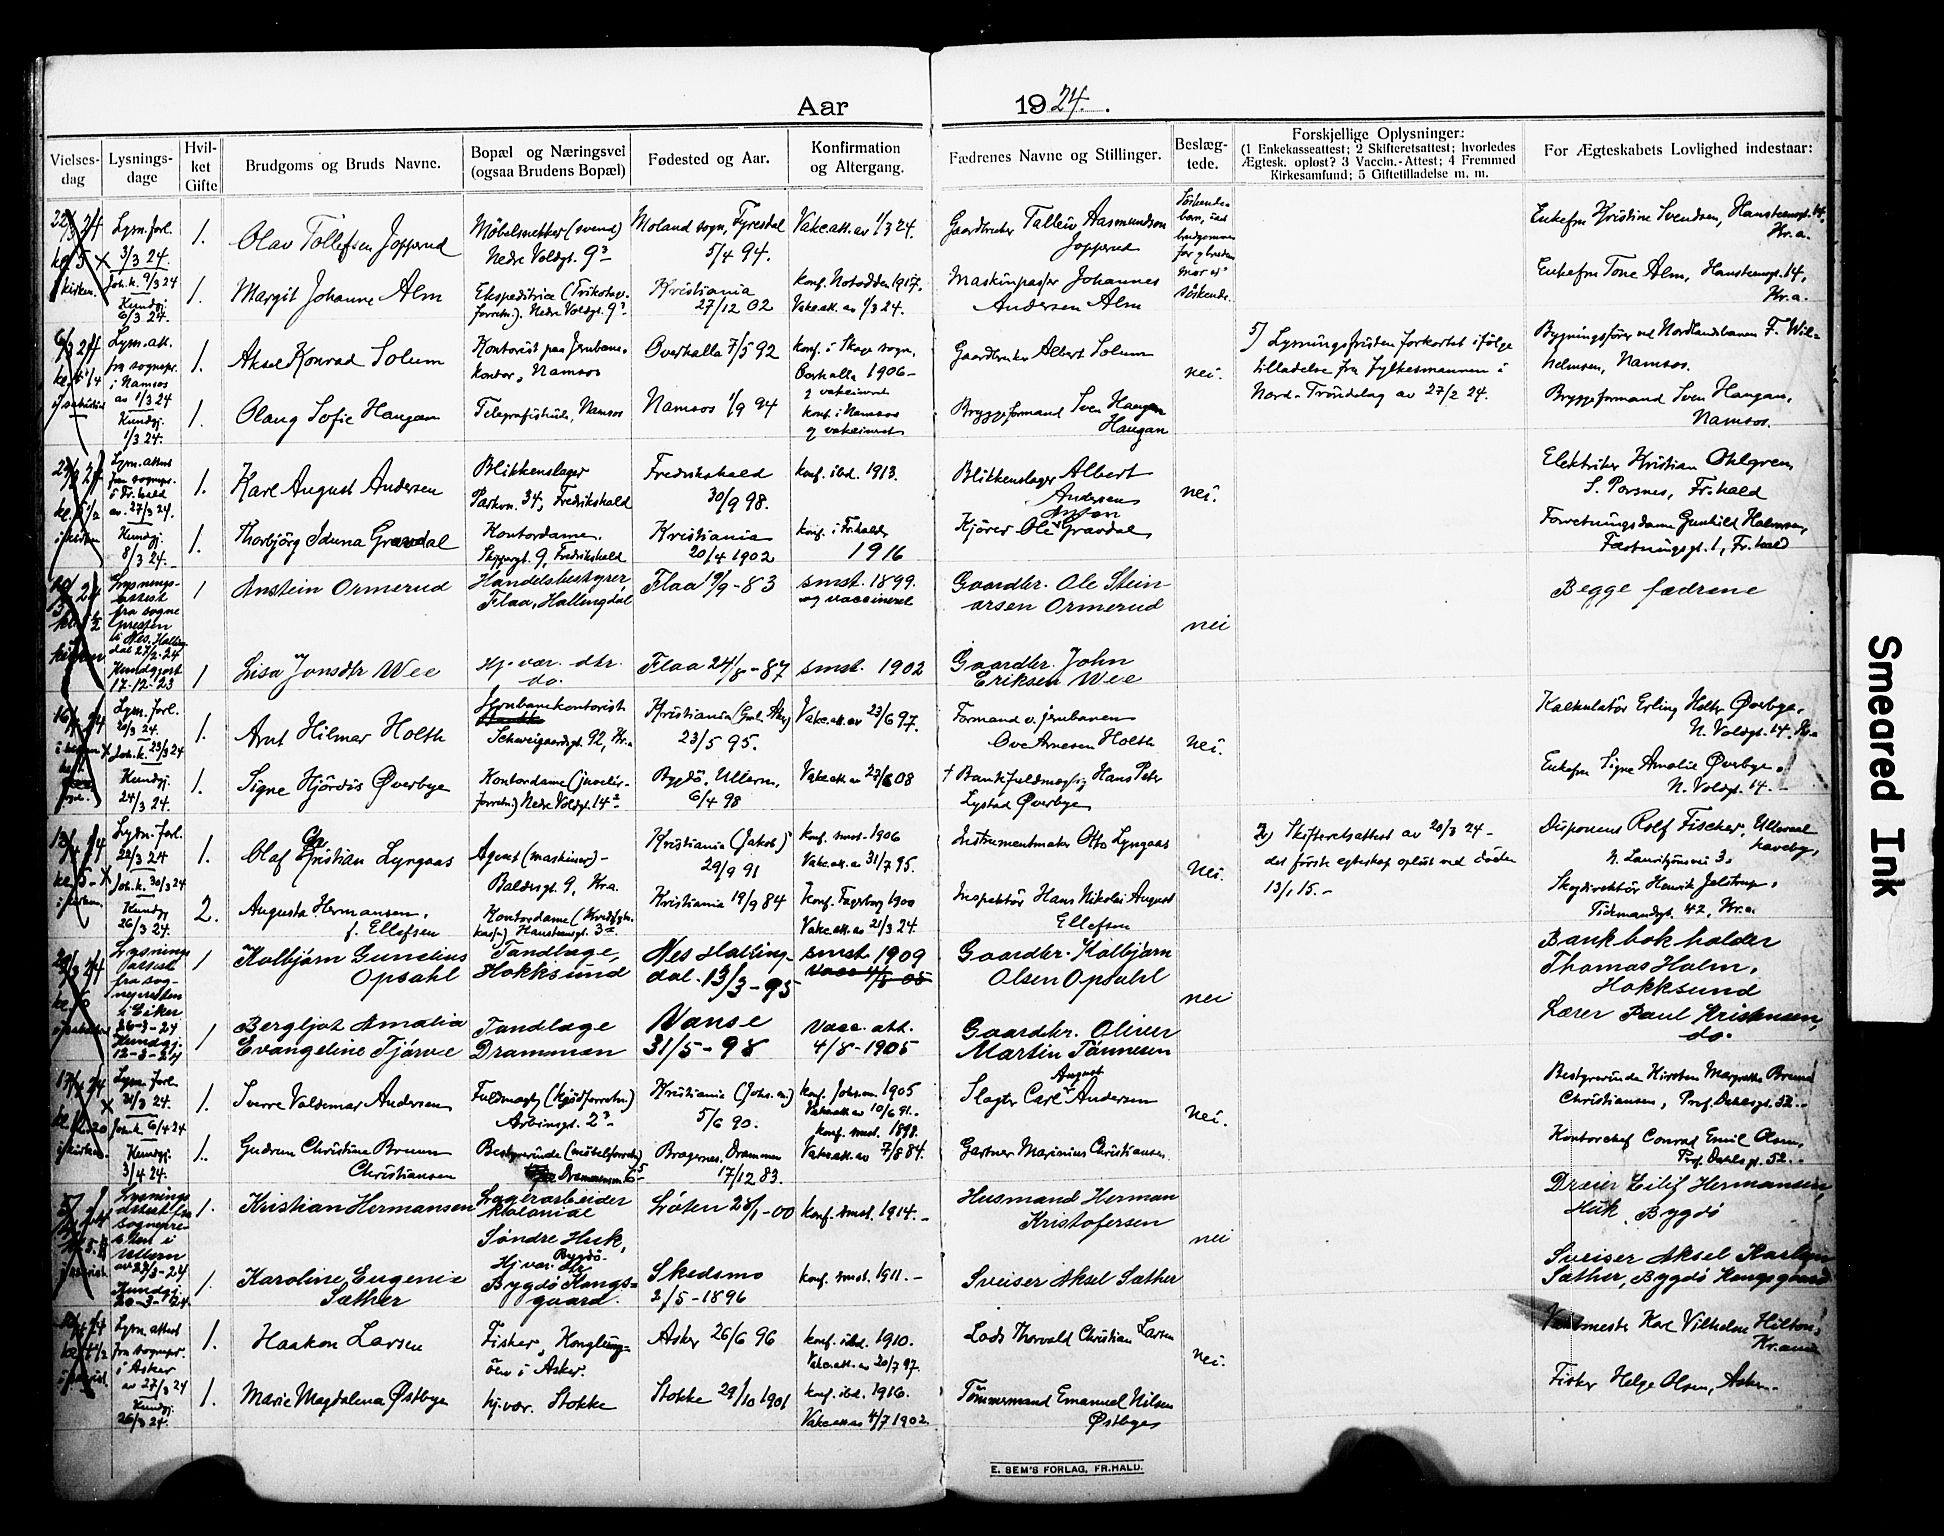 Aar 1924.
Vielses-dag
Lysnings-dage
Hvil-ket Gifte
Brudgoms og Bruds Navne.
Bopæl og Næringsvei (ogsaa Brudens Bopæl)
Fødested og Aar.
Konfirmation og Altergang.
Fædrenes Navne og Stillinger.
Beslæg-tede.
Forskjellige Oplysninger: (1 Enkekasseattest; 2 Skifteretsattest; hvorledes Ægtesk. opløst? 3 Vaccin.-Attest; 4 Fremmed Kirkesamfund; 5 Giftetilladelse m. m.
For Ægteskabets Lovlighed indestaar:
Lysn. forl.
3/3 24.
Joh.k. 9/3 24
Kundgj.
6/3 24.
1. Olav Tollefsen Jopperud
Møbelsnekker (svend)
Nedre Voldgt. 9³
Moland sogn, Fyresdal
5/4 94.
Vakc.att. av 1/3 24.
Gaardbruker Tallev Aasmundson
Jopperud
Enkefru Kristine Svendsen, Hansteensgt. 14,
Kr.a.
1. Margit Johanne Alm
Ekspeditrice (Trikotav-
forretn.). Nedre Voldgt. 9³
Kristiania
27/12 02
konf. Notodden 1917.
Vakc.att. av 1/3 24.
Maskinpasser Johannes
Andersen Alm
Enkefru Tone Alm, Hansteensgt. 14,
Kr.a.
Lysn.att.
fra sognepr.
i Namsos
av 1/3 24
Kundgj.
1/3 24.
1. Aksel Konrad Solum
Kontorist paa Jernbane-
kontor, Namsos
Overhalla 7/5 92
konf. i Skage sogn,
Overhalla 1906 -
og vakcineret
Gaardbruker Albert Solum
nei.
5) Lysningsfristen forkortet ifølge
tilladelse fra fylkesmannen i
Nord-Trøndelag av 27/2 24.
Bygningsfører ved Nordlandsbanen F. Wil-
helmsen, Namsos.
1. Olaug Sofie Haugan
Telegrafistinde, Namsos
Namsos 1/9 94
konf. i Namsos
og vakcineret
Bryggeformand Sven Haugan
Haugan
Bryggeformand Sven Haugan,
Namsos.
Lysn. attest
fra sognepr.
i Fr.hald
av. 27/3 24.
Kundgj.
8/3 24.
1. Karl August Andersen
Blikkenslager
Parkvn. 34, Fredrikshald
Fredrikshald
30/9 98.
konf. ibd. 1913.
Blikkenslager Albert
Andersen
nei.
Elektriker Kristian Ohlgren,
S. Porsnes, Fr.hald
1. Thorbjörg Iduna Gravdal
Kontordame,
Skippergt. 9, Fredrikshald
Kristiania
20/4 1902
konf. i Fr.hald
1916
Anton
Kjører Ole Gravdal
Forretningsdame Gunhild Halmsen,
Fæstningsgt. 1, Fr.hald
Lysnings-
attest
fra sogne
presten
i Nes, Halling
dal 27/2-24
Kundgjort
17-12-23
1 Anstein Ormerud
Handelsbestyrer,
Flaa, Hallingdal
Flaa 19/9-83
smst. 1899.
og vaccineret
Gaardbr. Ole Stein
arsen Ormerud
nei
Begge fædrene
1 Lisa Jonsdtr Wee
Hj.vær. dtr.
do.
Flaa 24/8-87
smst. 1902
Gaardbr. John
Eriksen Wee
Lysn. forl.
20/3 24.
Joh.k. 23/3 24
Kundgj.
24/3 24.
1. Arnt Hilmar Holth
Jernbanekontorist
Schweigaardsgt. 92, Kr.a
Kristiania (Gml. Aker)
23/5 95.
Vakc.att. av 23/6 97.
Formand v. jernbanen
Ove Arnesen Holth
nei.
Kalkulatør Erling Holter Øverbye,
N. Voldgt. 14, Kr.a
1. Signe Hjördis Øverbye
Kontordame (juveler-
forretn.) Nedre Voldgt. 14²
Bygdö, Ullern,
6/4 98
Vakc.att av 27/6 08
† Bankfuldmægtig Hans Peter
Lystad Øverbye
Enkefru Signe Amalie Øverbye,
N. Voldgt. 14.
Lysn. forl.
22/3 24
Joh.k. 30/3 24
Kundgj
26/3 24.
1. Olaf Christian Lyngaas
Agent (maskiner) -
Baldersgt. 9, Kr.a.
Kristiania (Jakob)
29/9 91
konf. smst. 1906
Vakc.att. av 31/7 95.
Instrumentmaker Otto Lyngaas
Nei.
2) Skifteretsattest av 20/3 24 -
det første egteskap opløst ved døden
13/1 15. -
Disponent Rolf Fischer, Ullevaal
haveby,
2. Augusta Hermansen,
f. Ellefsen
Kristiania 19/9 84
konf. Fagerborg 1900
Vakc.att. av 21/3 24.
Inspektør Hans Nikolai August
Ellefsen
Skogdirektör Henrik Jelstrup,
Tidemandsgt. 42, Kr.a.
Lysnings
attest
fra sog-
nepresten
i Eiker
26-3-24
Kundgj.
12-3-24
1 Kolbjørn Gunelius
Opsahl
Tandlæge,
Hokksund
Nes Halling-
dal. 13/3-95
smst 1909
Gaardbr. Kolbjørn
Olsen Opsahl
nei
Bankbokholder
Thomas Holm,
Hokksund
1 Bergljot Amalia
Evangeline Tjörve
Tandlæge
Drammen
Vanse
31/5-98
Vacc. att.
4/8-1905
Gaardbr. Oliver
Martin Tønnesen
Lærer Paul Kristensen,
do.
Lysn. forl.
31/3 24.
Joh.k. 6/4 24
Kundgj.
3/4 24.
1. Sverre Valdemar Andersen
Fuldmægtig (kjødforretn.)
Arbinsgt. 2³
Kristiania (Johs. m.)
5/6 90.
konf. Johs.m. 1905
Vakc.att. av 10/6 91.
August
Slagter Carl Andersen
nei.
Bestyrerinde Kirsten Margrethe Bruun
Christiansen, Prof. Dahlsgt. 52.
1. Gudrun Christine Bruun
Christiansen
Bestyrerinde (møbelforretn.)
Drammensvn 6⁵
Bragernes, Drammen
17/12 83.
konf. smst. 1898.
Vakc.att. av 7/8 84.
Gartner Marinius Christiansen
Kontorchef Conrad Emil Olsen,
Prof. Dahls gt. 52.
Lysnings
attest fra
sognepre-
sten i
Ullern
av 22/3-24
Kundgj.
20-3-24.
1. Kristian Hermansen
Lagerarbeider
kolonial
Søndre Huk,
Bygdö
Løten 28/1-00
konf. smst. 1914. -
Husmand Herman
Kristofersen
nei
Dreier Eilif Hermansen
Huk, Bygdö
1. Karoline Eugenie
Sæther
Hj.vær.
Bygdø Kongs-
gaard.
Skedsmo
2/5-1896
konf. smst. 1911. -
Sveiser Aksel Sæther
Sveiser Aksel Karlsen
Sæther, Bygdø Kongsgaard
Lysn. attest
fra sognepr.
i Asker
av 27/3 24
Kundgj.
26/3 24.
1. Haakon Larsen
Fisker, Konglung-
öen i Asker.
Asker 26/6 96
konf. ibd. 1910.
Vakc.att. av 20/7 97.
Lods Thorvald Christian Larsen
nei.
Karl Vilhelm Hilton,
1. Marie Magdalena Østbye
hj.vær. Stokke
Stokke 29/10 1901
konf. ibd. 1916.
Vakc.att. av 4/7 1902.
Tömmermand Emanuel Nilsen
Østbye
Fisker Helge Olsen, Asker.
E. SEM'S FORLAG, FR.HALD.
Smeared Ink